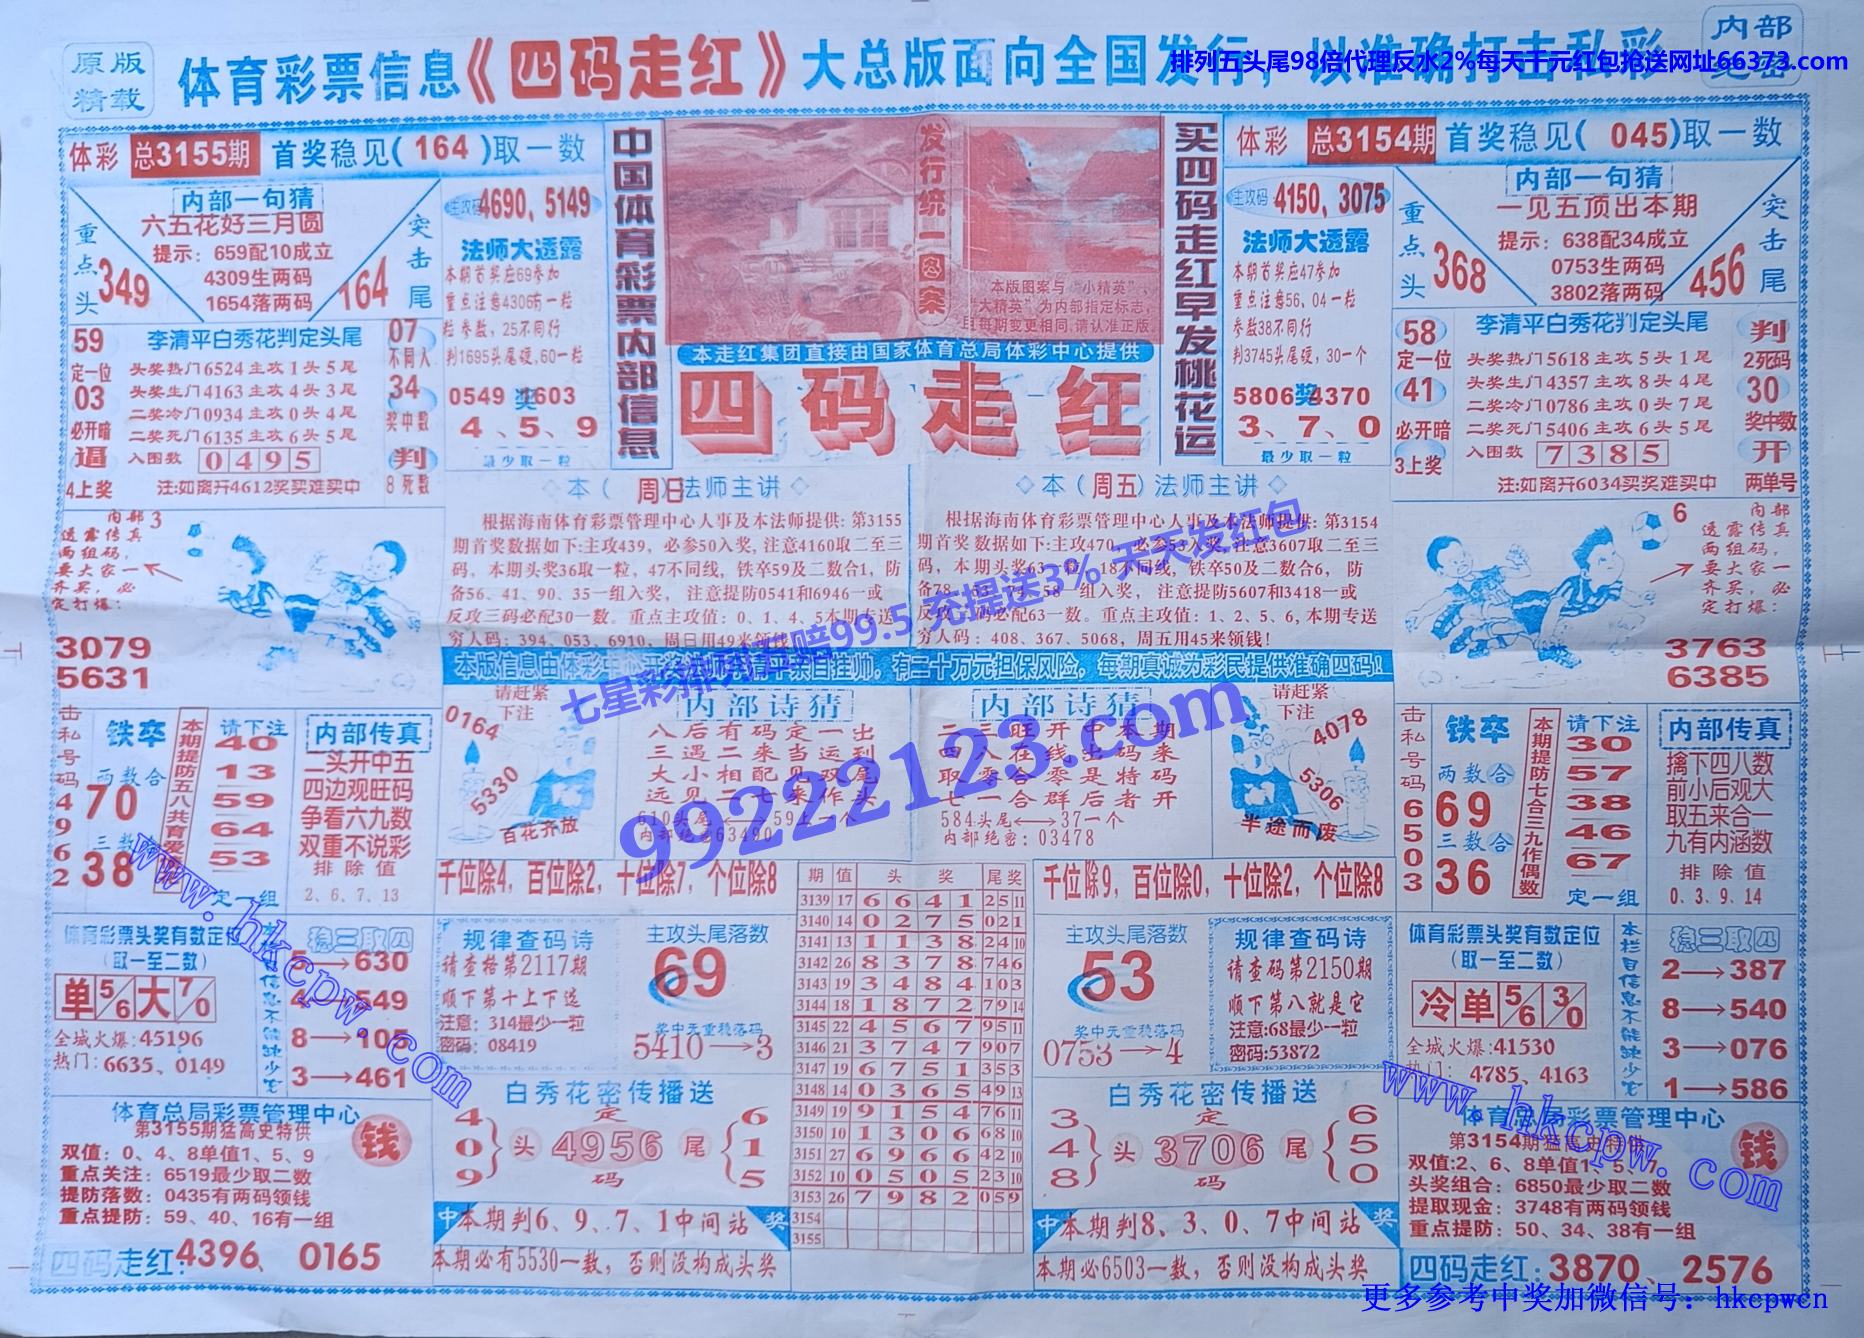 原版
精载
体育彩票信息《四码走红》大总版面向全国发行，以准确打击私彩
内部
排列五头尾98倍代理反水2%每天千元红包抢送网址66373.com
体彩 总3155期 首奖稳见(164)取一数
内部一句猜
六五花好三月圆
提示：659配10成立
4309生两码
1654落两码
重点头
349
突击尾
164
主攻码 4690、5149
法师大透露
本期首奖应69参加
重点注意4306有一粒
粒参数，25不同行
判1695头尾硬，60一粒
0549 奖 1603
4、5、9
最少取一粒
59
定一位
03
必开暗
逼
4上奖
李清平白秀花判定头尾
头奖热门6524主攻1头5尾
头奖生门4163主攻4头3尾
二奖冷门0934主攻0头4尾
二奖死门6135主攻6头5尾
入围数 0495
注:如离开4612奖买难买中
07
不同人
34
奖中数
判
8死数
中国体育彩票内部信息
发行统一图案
本版图案与“小精英”、
“大精英”为内部指定标志，
且每期变更相同，请认准正版
本走红集团直接由国家体育总局体彩中心提供
四码走红
买四码走红早发桃花运
体彩 总3154期 首奖稳见(045)取一数
主攻码 4150、3075
法师大透露
本期首奖应47参加
重点注意56、04一粒
参数38不同行
判3745头尾硬，30一个
5806 奖 4370
3、7、0
最少取一粒
内部一句猜
一见五顶出本期
提示：638配34成立
0753生两码
3802落两码
重点头
368
突击尾
456
58
定一位
41
必开暗
3上奖
李清平白秀花判定头尾
头奖热门5618主攻5头1尾
头奖生门4357主攻8头4尾
二奖冷门0786主攻0头7尾
二奖死门5406主攻6头5尾
入围数 7385
注:如离开6034买奖难买中
判
2死码
30
奖中数
开
两单号
内部 3
透露传真
两组码，
要大家一
齐买，必
定打爆：
3079
5631
本(周日)法师主讲
根据海南体育彩票管理中心人事及本法师提供：第3155
期首奖数据如下:主攻439，必参50入奖，注意4160取二至三
码，本期头奖36取一粒，47不同线，铁卒59及二数合1，防
备56、41、90、35一组入奖，注意提防0541和6946一或
反攻三码必配30一数。重点主攻值：0、1、4、5本期专送
穷人码：394、053、6910，周日用49来领钱
本(周五)法师主讲
根据海南体育彩票管理中心人事及本法师提供：第3154
期首奖数据如下:主攻470，必参53入奖，注意3607取二至三
码，本期头奖63一粒，18不同线，铁卒50及二数合6，防
备78、63、74、58一组入奖，注意提防5607和3418一或
反攻三码必配63一数。重点主攻值：1、2、5、6，本期专送
穷人码：408、367、5068，周五用45来领钱!
6 内部
透露传真
两组码，
要大家一
齐买，必
定打爆：
3763
6385
七星彩排列五赔99.5 充提送3% 天天发红包
99222123.com
击私号码4962
铁卒
两数合
70
三数
38
请下注
40
13
59
64
53
定一组
内部传真
二头开中五
四边观旺码
争看六九数
双重不说彩
排除值
2、6、7、13
请赶紧
下注
0164
5330
百花齐放
内部诗猜
八后有码定一出
三遇二来当运到
大小相配见双尾
远见二七来作头
610头尾⟷59上一个
内部绝密63490
内部诗猜
二三旺开中本期
四八在线出码来
取零合零是特码
七一合群后者开
584头尾⟷37一个
内部绝密：03478
请赶紧
下注
4078
5306
半途而废
击私号码6503
铁卒
两数合
69
三数合
36
本期提防七合二九作偶数
请下注
30
57
38
46
67
定一组
内部传真
擒下四八数
前小后观大
取五来合一
九有内涵数
排除值
0、3、9、14
千位除4，百位除2，十位除7，个位除8
千位除9，百位除0，十位除2，个位除8
期 值 头 奖 尾奖
3139 17 6 6 4 1 25 11
3140 14 0 2 7 5 021
3141 13 1 1 3 8 24 10
3142 26 8 3 7 8 746
3143 19 3 4 8 4 103
3144 18 1 8 7 2 79 14
3145 22 4 5 6 7 95 11
3146 21 3 7 4 7 907
3147 19 6 7 5 1 353
3148 14 0 3 6 5 49 13
3149 19 9 1 5 4 76 11
3150 10 1 3 0 6 68 10
3151 27 6 9 6 6 42 10
3152 10 0 5 0 5 23 10
3153 26 7 9 8 2 059
3154
3155
体育彩票头奖有数定位
(取一至二数)
单5/6大7/0
全城火爆:45196
热门：6635、0149
稳三取四
→630
4→549
8→105
3→461
规律查码诗
请查格第2117期
顺下第十上下选
注意：314最少一粒
密码：08419
主攻头尾落数
69
奖中无重稳落码
5410→3
主攻头尾落数
53
奖中无重稳落码
0753→4
规律查码诗
请查码第2150期
顺下第八就是它
注意:68最少一粒
密码:53872
体育彩票头奖有数定位
(取一至二数)
冷单5/6 3/0
全城火爆:41530
热门：4785、4163
本栏目信息不能缺少它
稳三取四
2→387
8→540
3→076
1→586
体育总局彩票管理中心
第3155期猛高史特供
双值：0、4、8单值1、5、9
重点关注：6519最少取二数
提防落数：0435有两码领钱
重点提防：59、40、16有一组
钱
四码走红:4396、0165
白秀花密传播送
4
0
9
头 定 4956 码 尾
6
1
5
中 本期判6、9、7、1中间站 奖
本期必有5530一数，否则没构成头奖
白秀花密传播送
3
4
8
头 定 3706 码 尾
6
5
0
中 本期判8、3、0、7中间站 奖
本期必6503一数，否则没构成头奖
体育总局彩票管理中心
第3154期猛高史特供
双值:2、6、8单值1、5、7
头奖组合：6850最少取二数
提取现金：3748有两码领钱
重点提防：50、34、38有一组
钱
四码走红：3870、2576
www.hkcpw.com
www.hkcpw.com
更多参考中奖加微信号：hkcpwcn